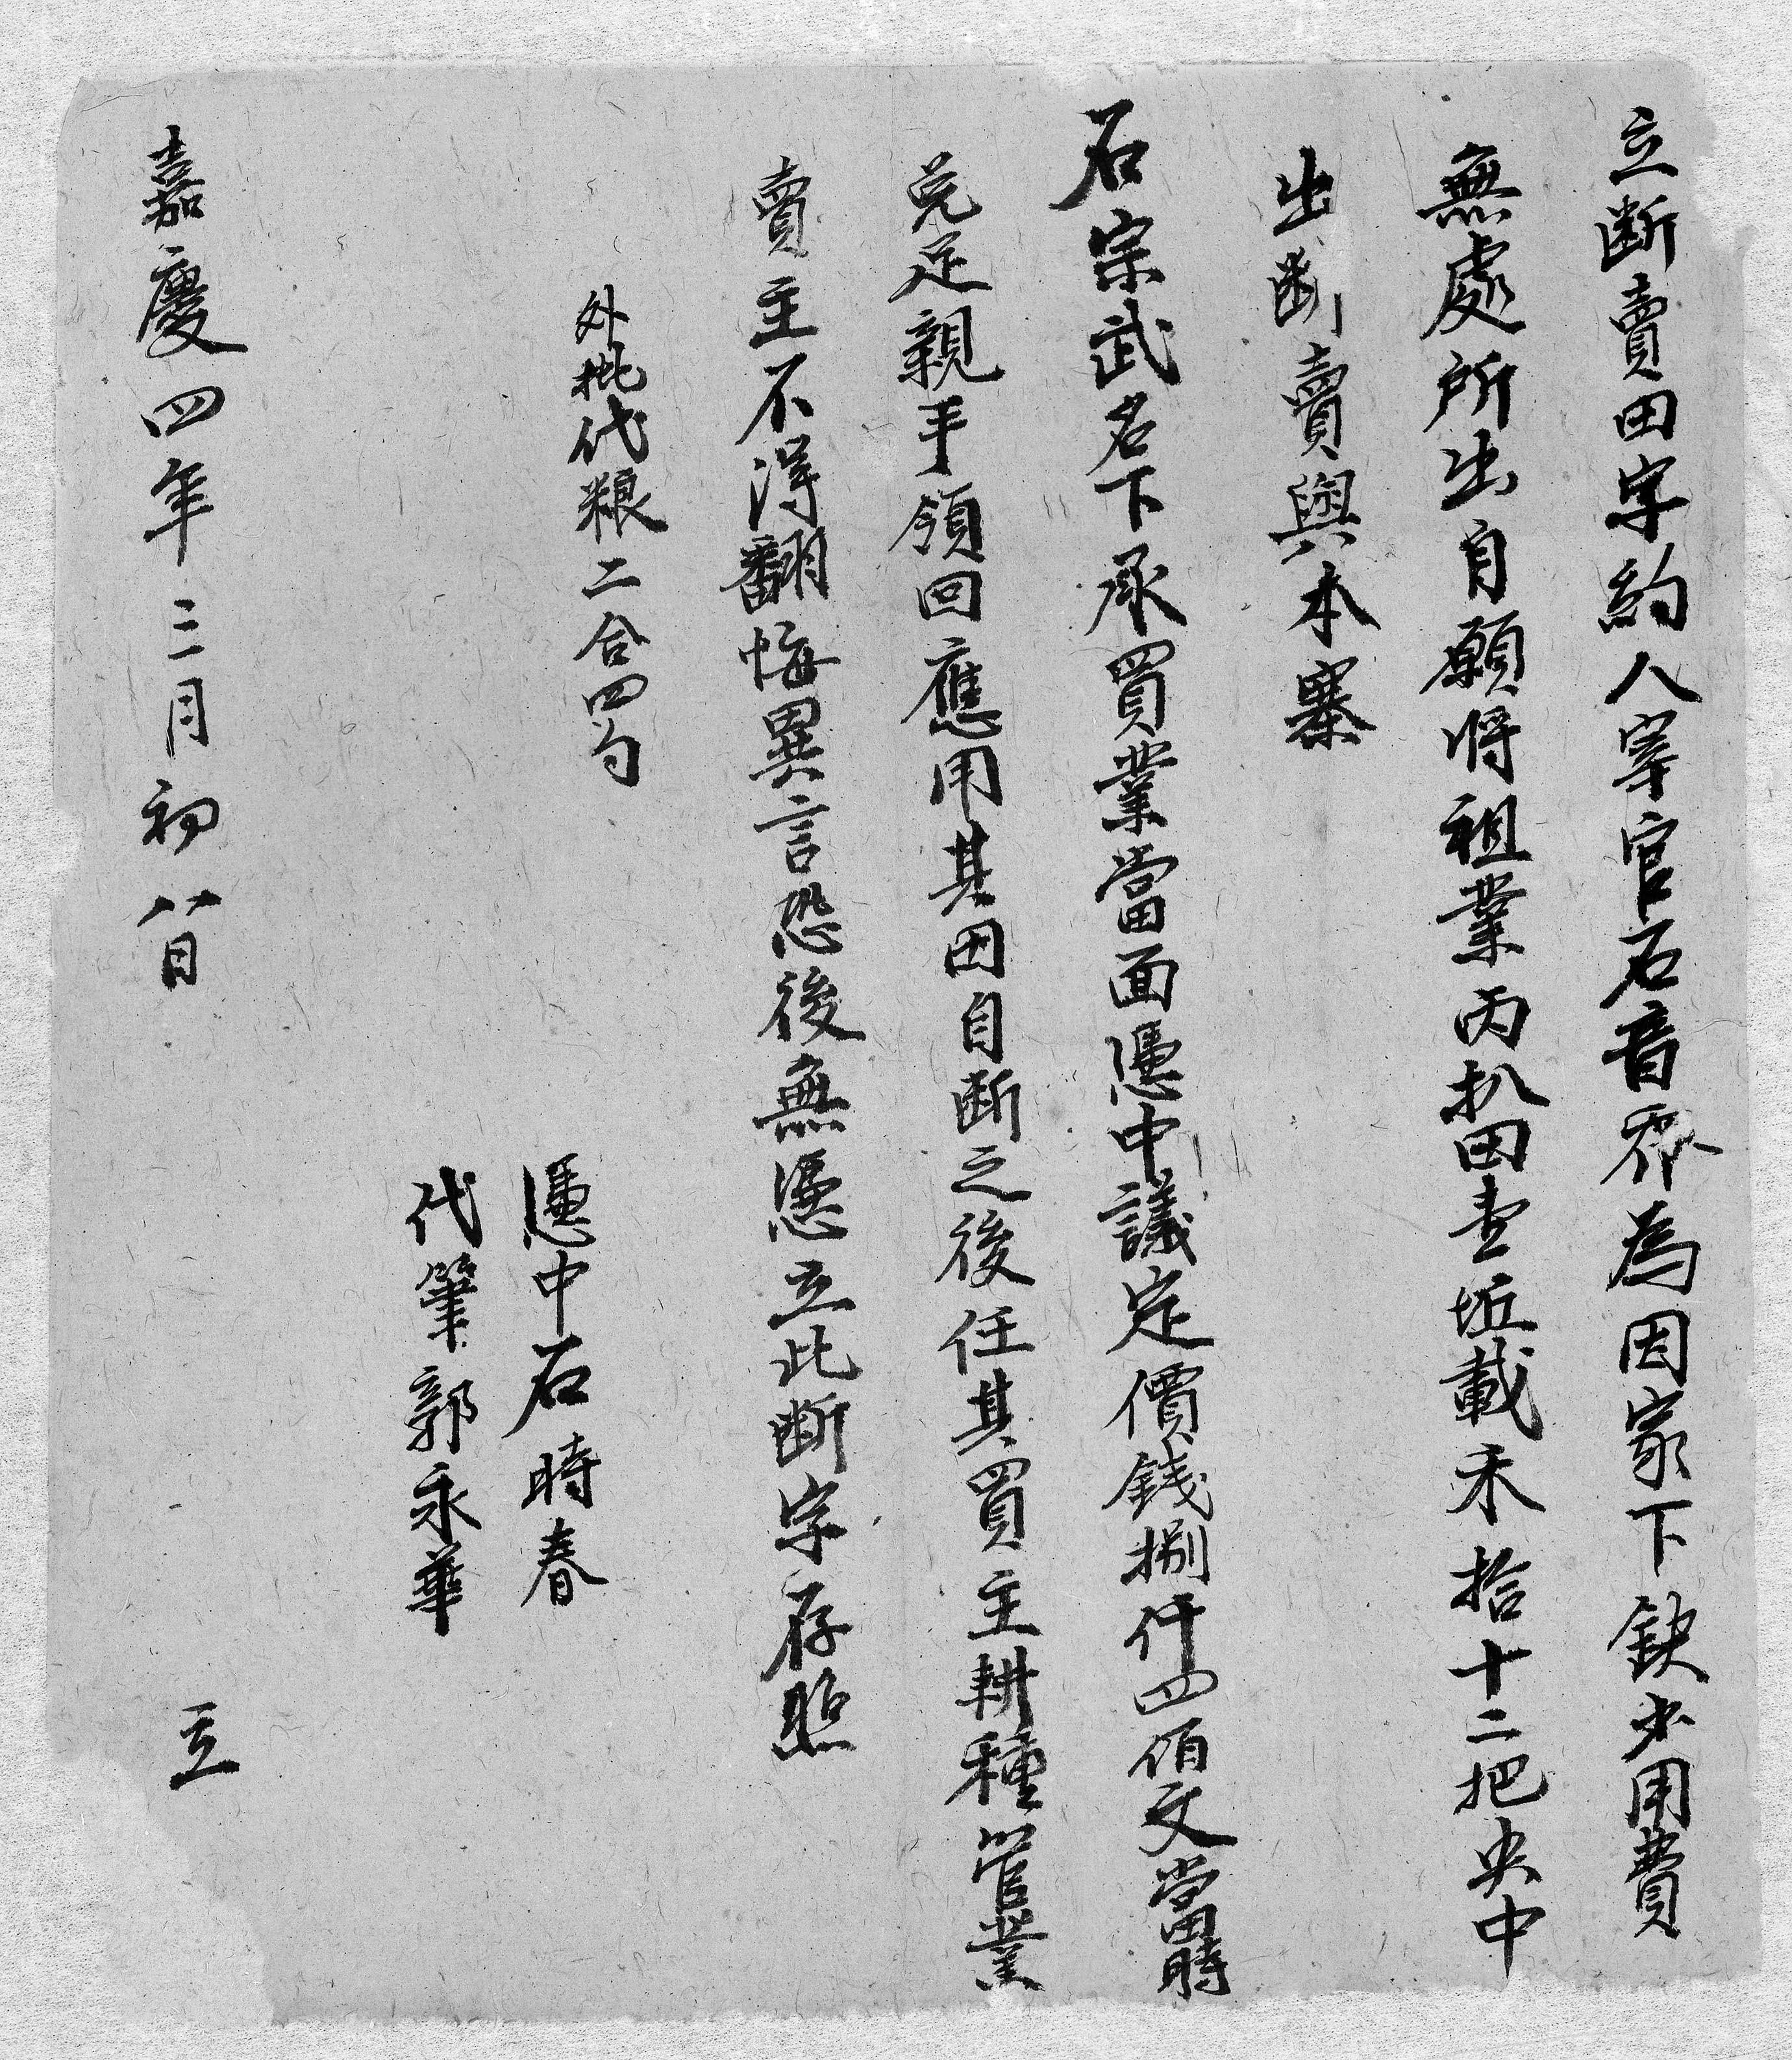 立断賣田字約人宰官石音乔為因家下缺少用費
無處所出自願将祖業丙扒田壹坵載禾拾十二把央中
出断賣與本寨
石宗武名下承買業當面憑中議定價錢捌仟四佰文當時
兑足親手領回應用其田自断之後任其買主耕種管業
賣主不得翻悔異言恐後無憑立此断字存照
外批代粮二合四勺
憑中石時春
代筆郭永華
嘉慶四年三月初八日 立